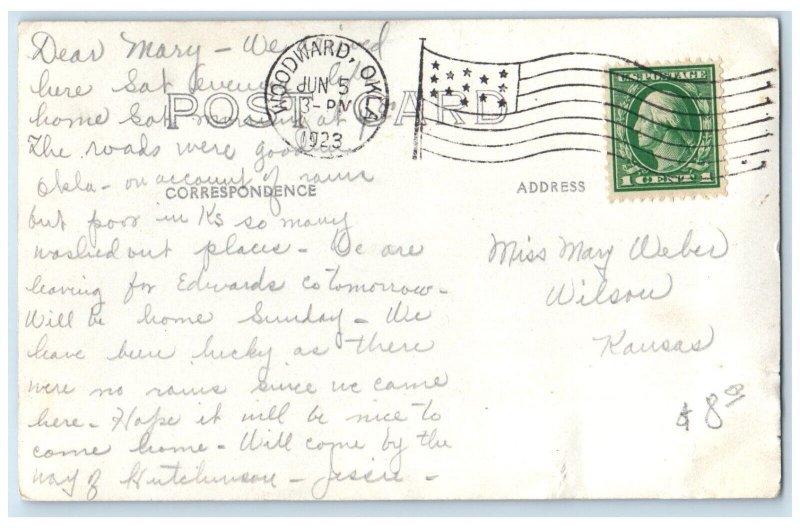 Dear Mary - We arrived
here Sat evening
home Sat morning at
The roads were good in
Okla - on account of rains
but poor in Ks so many
washed out places - We are
leaving for Edwards co tomorrow -
Will be home Sunday - We
have been lucky as there
were no rains since we came
here - Hope it will be nice to
come home - Will come by the
way of Hutchinson - Jessie -
POST CARD
CORRESPONDENCE
ADDRESS
WOODWARD, OKLA
JUN 5
3-PM
1923
U.S. POSTAGE
1 CENTS 1
Miss Mary Weber
Wilson
Kansas